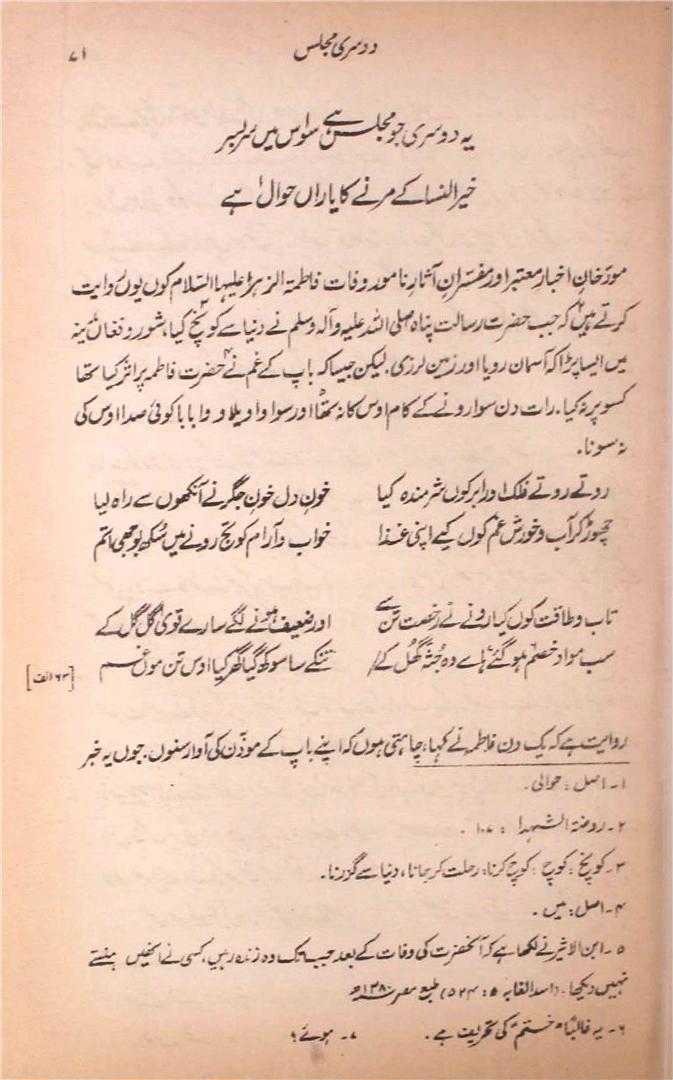 دوسری مجلس
۷۱
یہ دوسری جو مجلس ہے سو اس میں سر بسر
خیر النسا کے مرنے کا یاراں حوال۱ ہے
مورّخانِ اخبارِ معتبر اور مفسّرانِ آثارِ نامور وفات فاطمۃ الزہرا علیہا السّلام کوں یوں روایت
کرتے ہیں۲ کہ جب حضرت رسالت پناہ صلی اللہ علیہ وآلہ وسلم نے دنیا سے کونچ۳ کیا، شور و فغاں مدینہ
میں ایسا پڑا کہ آسمان رویا اور زمین لرزی. لیکن جیسا کہ باپ کے غم نے۴ حضرت فاطمہ پر اثر کیا تھا
کسو پر نہ کیا. رات دن سوا رونے کے کام اوس کا نہ تھا۵ اور سوا واویلا و وابابا کوئی صدا اوس کی
نہ سونا.
روتے روتے فلک اور ابر کوں شرمندہ کیا خونِ دل خونِ جگر نے آنکھوں سے راہ لیا
چھوڑ کر آب و خورش غم کوں کیے اپنی غذا خواب و آرام کو تج رونے میں سُکھ بوجھی اتم
تاب و طاقت کوں کیا رونے نے رخصت تن سے اور ضعیف ہونے لگے سارے قویٰ گل گل کے
سب مواد خصم۶ ہو گئے۷ ہاے وہ جُثہ گھُل کے تنکے سا سوکھ گیا گھر کیا اوس تن موں غم
[۶۳ الف]
روایت ہے کہ یک دن فاطمہ نے کہا، چاہتی ہوں کہ اپنے باپ کے موذّن کی آواز سنوں. جوں یہ خبر
۱۔ اصل: حوالی.
۲۔ روضۃ الشہدا: ۱۰۷.
۳۔ کونچ: کوچ: کوچ کرنا: رحلت کر جانا، دنیا سے گزرنا.
۴۔ اصل: میں.
۵۔ ابن الاثیر نے لکھا ہے کہ آنحضرت کی وفات کے بعد جب تک وہ زندہ رہیں، کسی نے انھیں ہنستے
نہیں دیکھا. (اسد الغابہ ۵: ۵۲۴) طبع مصر ۱۲۸۰ھ
۶۔ یہ غالباً "ختم" کی تحریف ہے. ۷۔ ہوئے؟